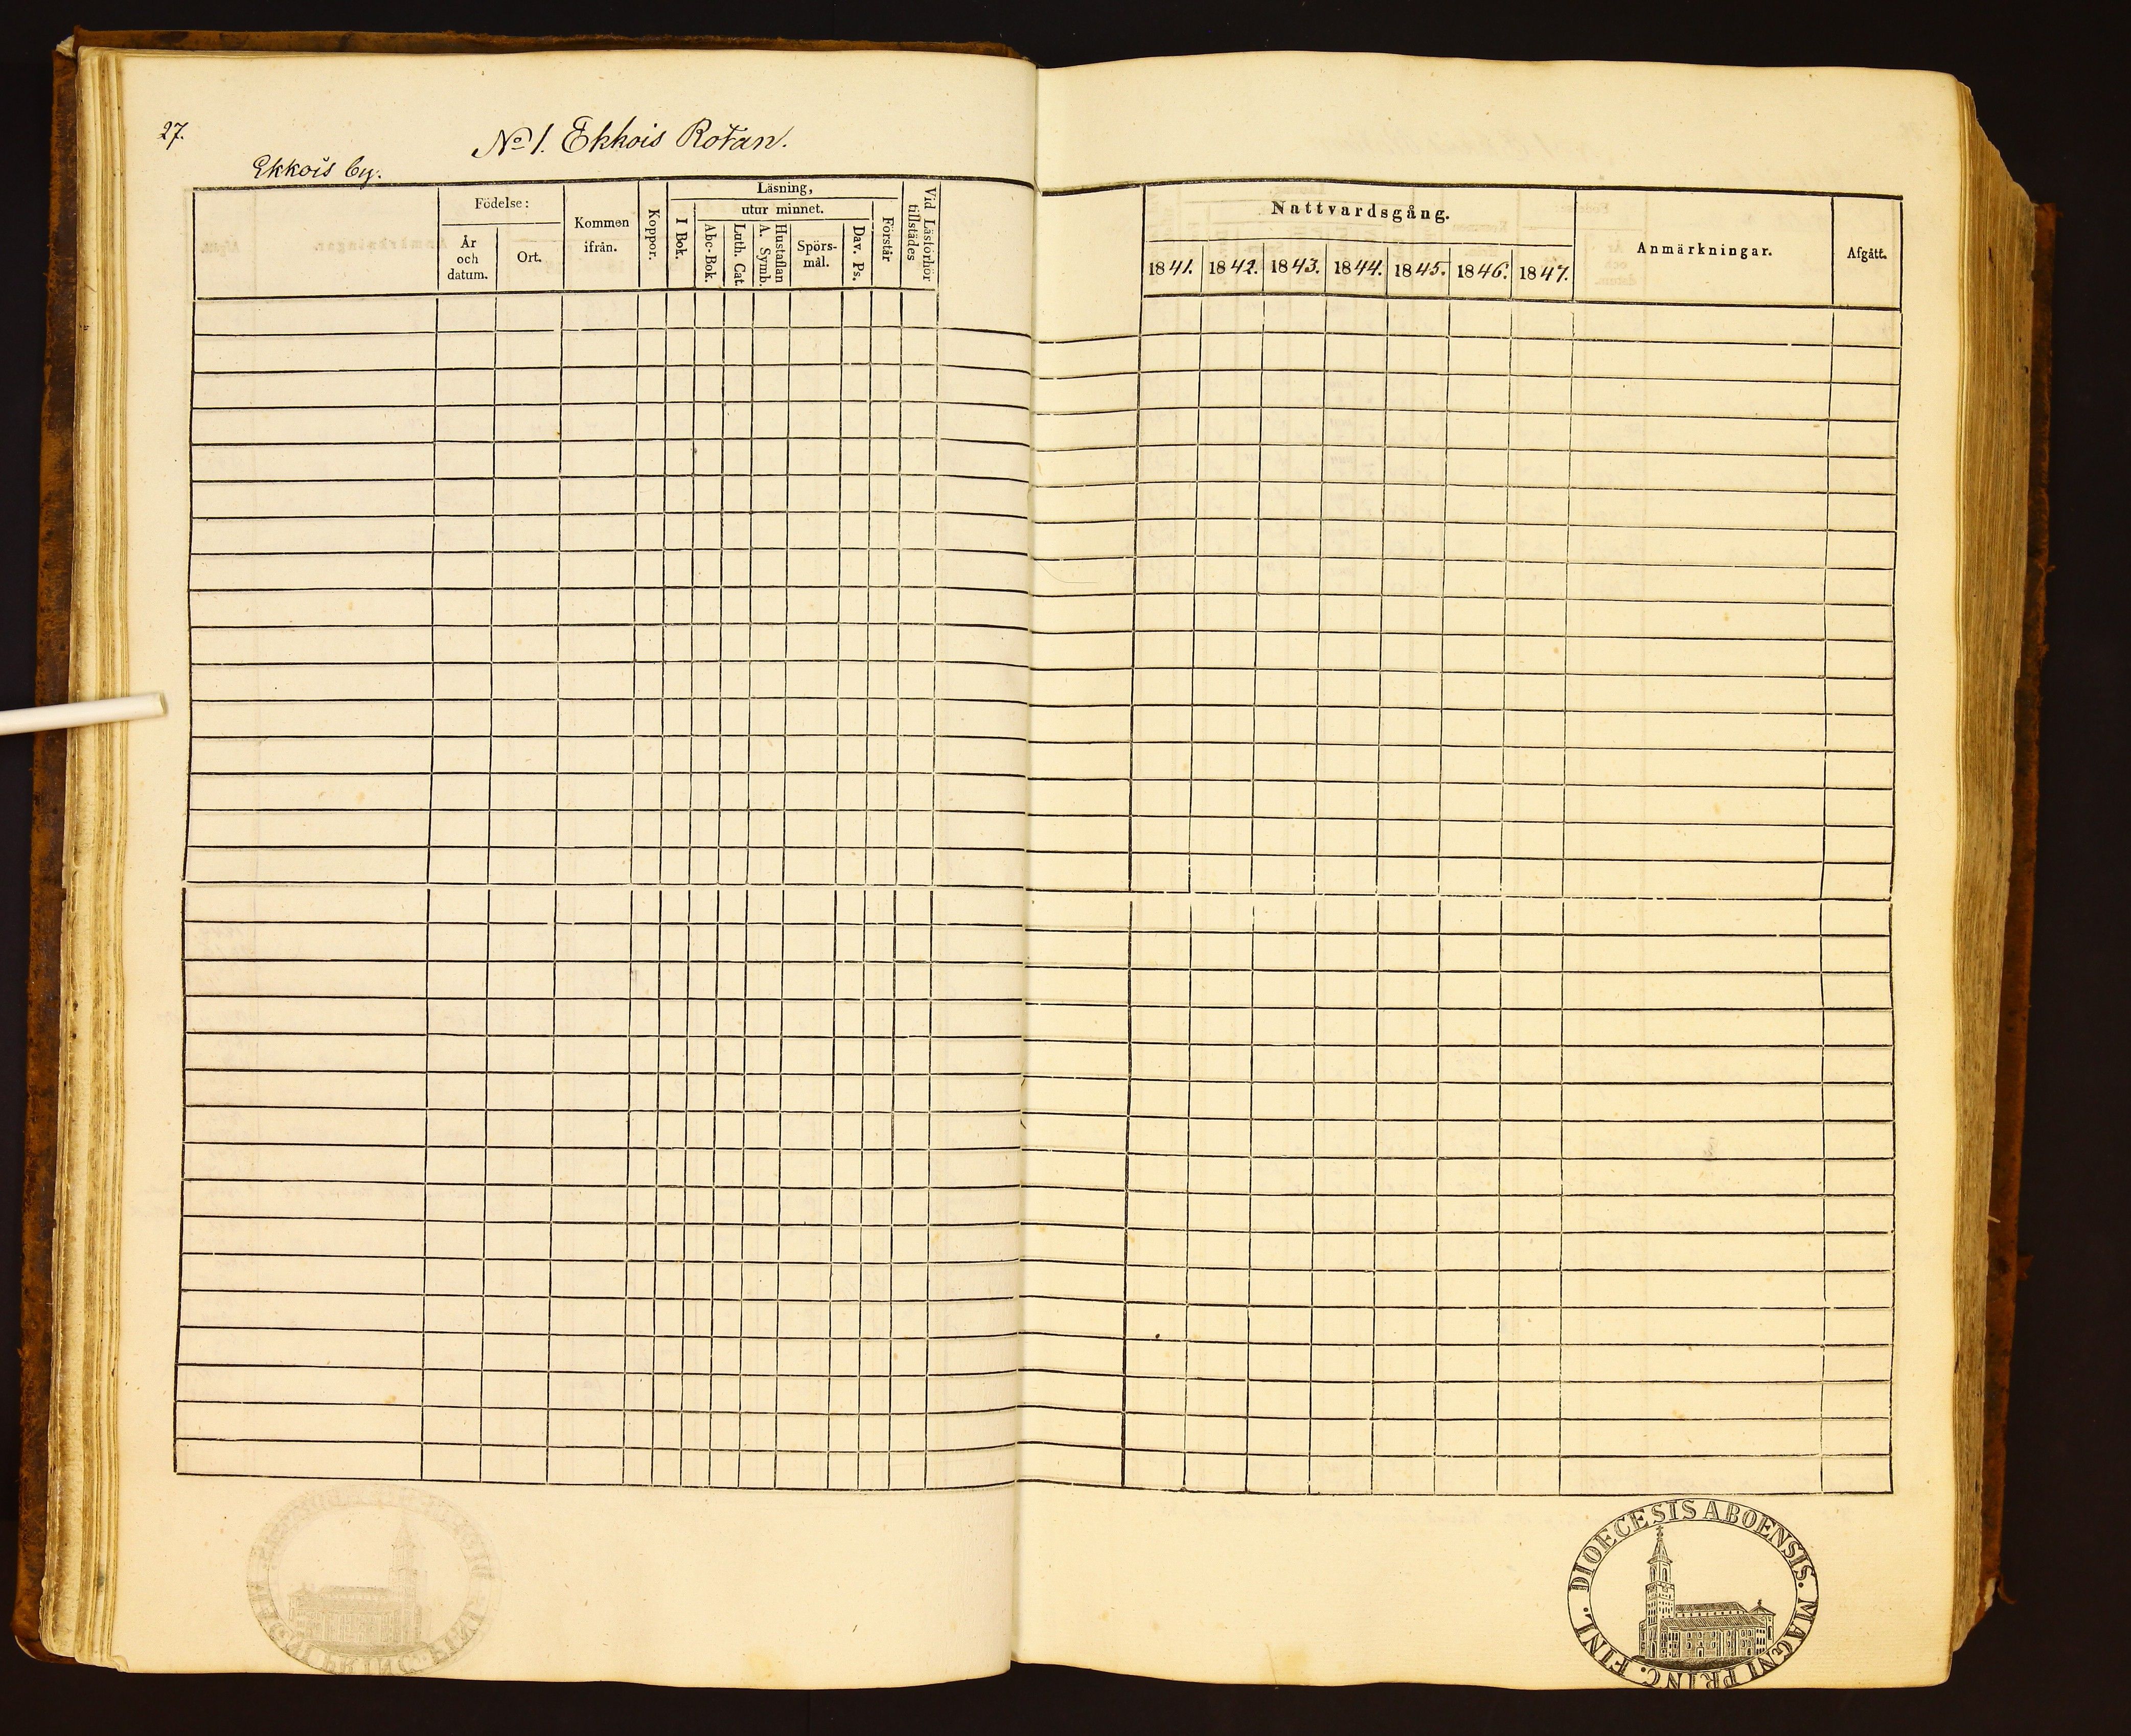 27.
No 1. Ekkois Rotan.
Ekkois by.
Födelse:
År
och
datum.
Ort.
Kommen
ifrån.
Koppor.
Läsning,
I Bok.
utur minnet.
Abc-Bok.
Luth. Cat.
A. Symb.
Hustaflan
Spörs-
mål.
Dav. Ps.
Förstår
Vid Läsförhör
tillstädes
Nattvardsgång.
1841. 1842. 1843. 1844. 1845. 1846. 1847.
Anmärkningar.
Afgått.
DIOECESIS ABOENSIS. MAGNI PRINC. FINL.